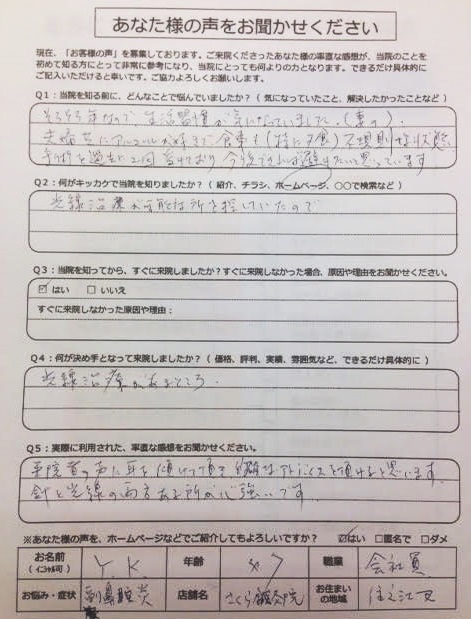 あなた様の声をお聞かせください
現在、「お客様の声」を募集しております。ご来院くださったあなた様の率直な感想が、当院のことを
初めて知る方にとって非常に参考になり、当院にとっても何よりの力となります。できるだけ具体的に
ご記入いただけると幸いです。ご協力よろしくお願いします。
Q1:当院を知る前に、どんなことで悩んでいましたか?(気になっていたこと、解決したかったことなど)
そろそろ年なので生活習慣が気になっていました.(妻の).
夫婦共にアルコールが好きで食事も(特に夕食)不規則な状態
手術を過去に2回受けており今後できれば避けたいと思っています
Q2:何がキッカケで当院を知りましたか?(紹介、チラシ、ホームページ、○○で検索など)
光線治療が可能な所を探していたので
Q3:当院を知ってから、すぐに来院しましたか?すぐに来院しなかった場合、原因や理由をお聞かせください。
☑はい □いいえ
すぐに来院しなかった原因や理由:
Q4:何が決め手となって来院しましたか?(価格、評判、実績、雰囲気など、できるだけ具体的に)
光線治療があるところ.
Q5:実際に利用された、率直な感想をお聞かせください。
の声に耳を傾けて頂き的確なアドバイスを頂けると思います.
針と光線の両方ある所が心強いです.
※あなた様の声を、ホームページなどでご紹介してもよろしいですか? ☑はい □匿名で □ダメ
お名前 Y.K 年齢 47 職業 会社員
(イニシャル可)
お悩み・症状 副鼻腔炎 店舗名 さくら鍼灸院 お住まいの地域 住之江区